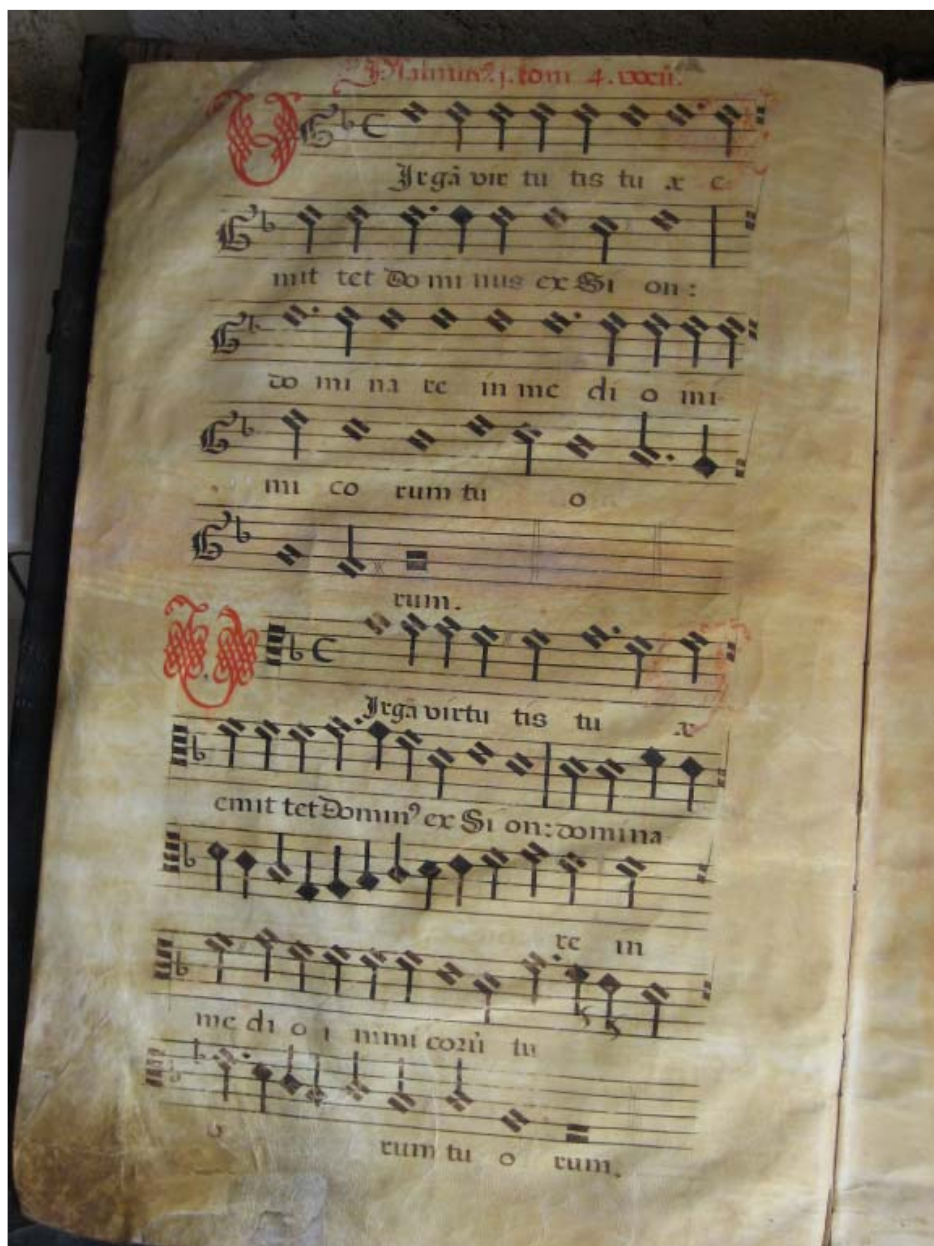 Psalmus. j. tom 4. vocū.
VJrgā vir tu tis tu æ e
mit tet Do mi nus ex Si on:
do mi na re in me di o ini
mi co rum tu o
rum.
VJrgā virtu tis tu æ
emit tet Domin⁹ ex Si on: domina
re in
me di o i nimi corū tu
o rum tu o rum.